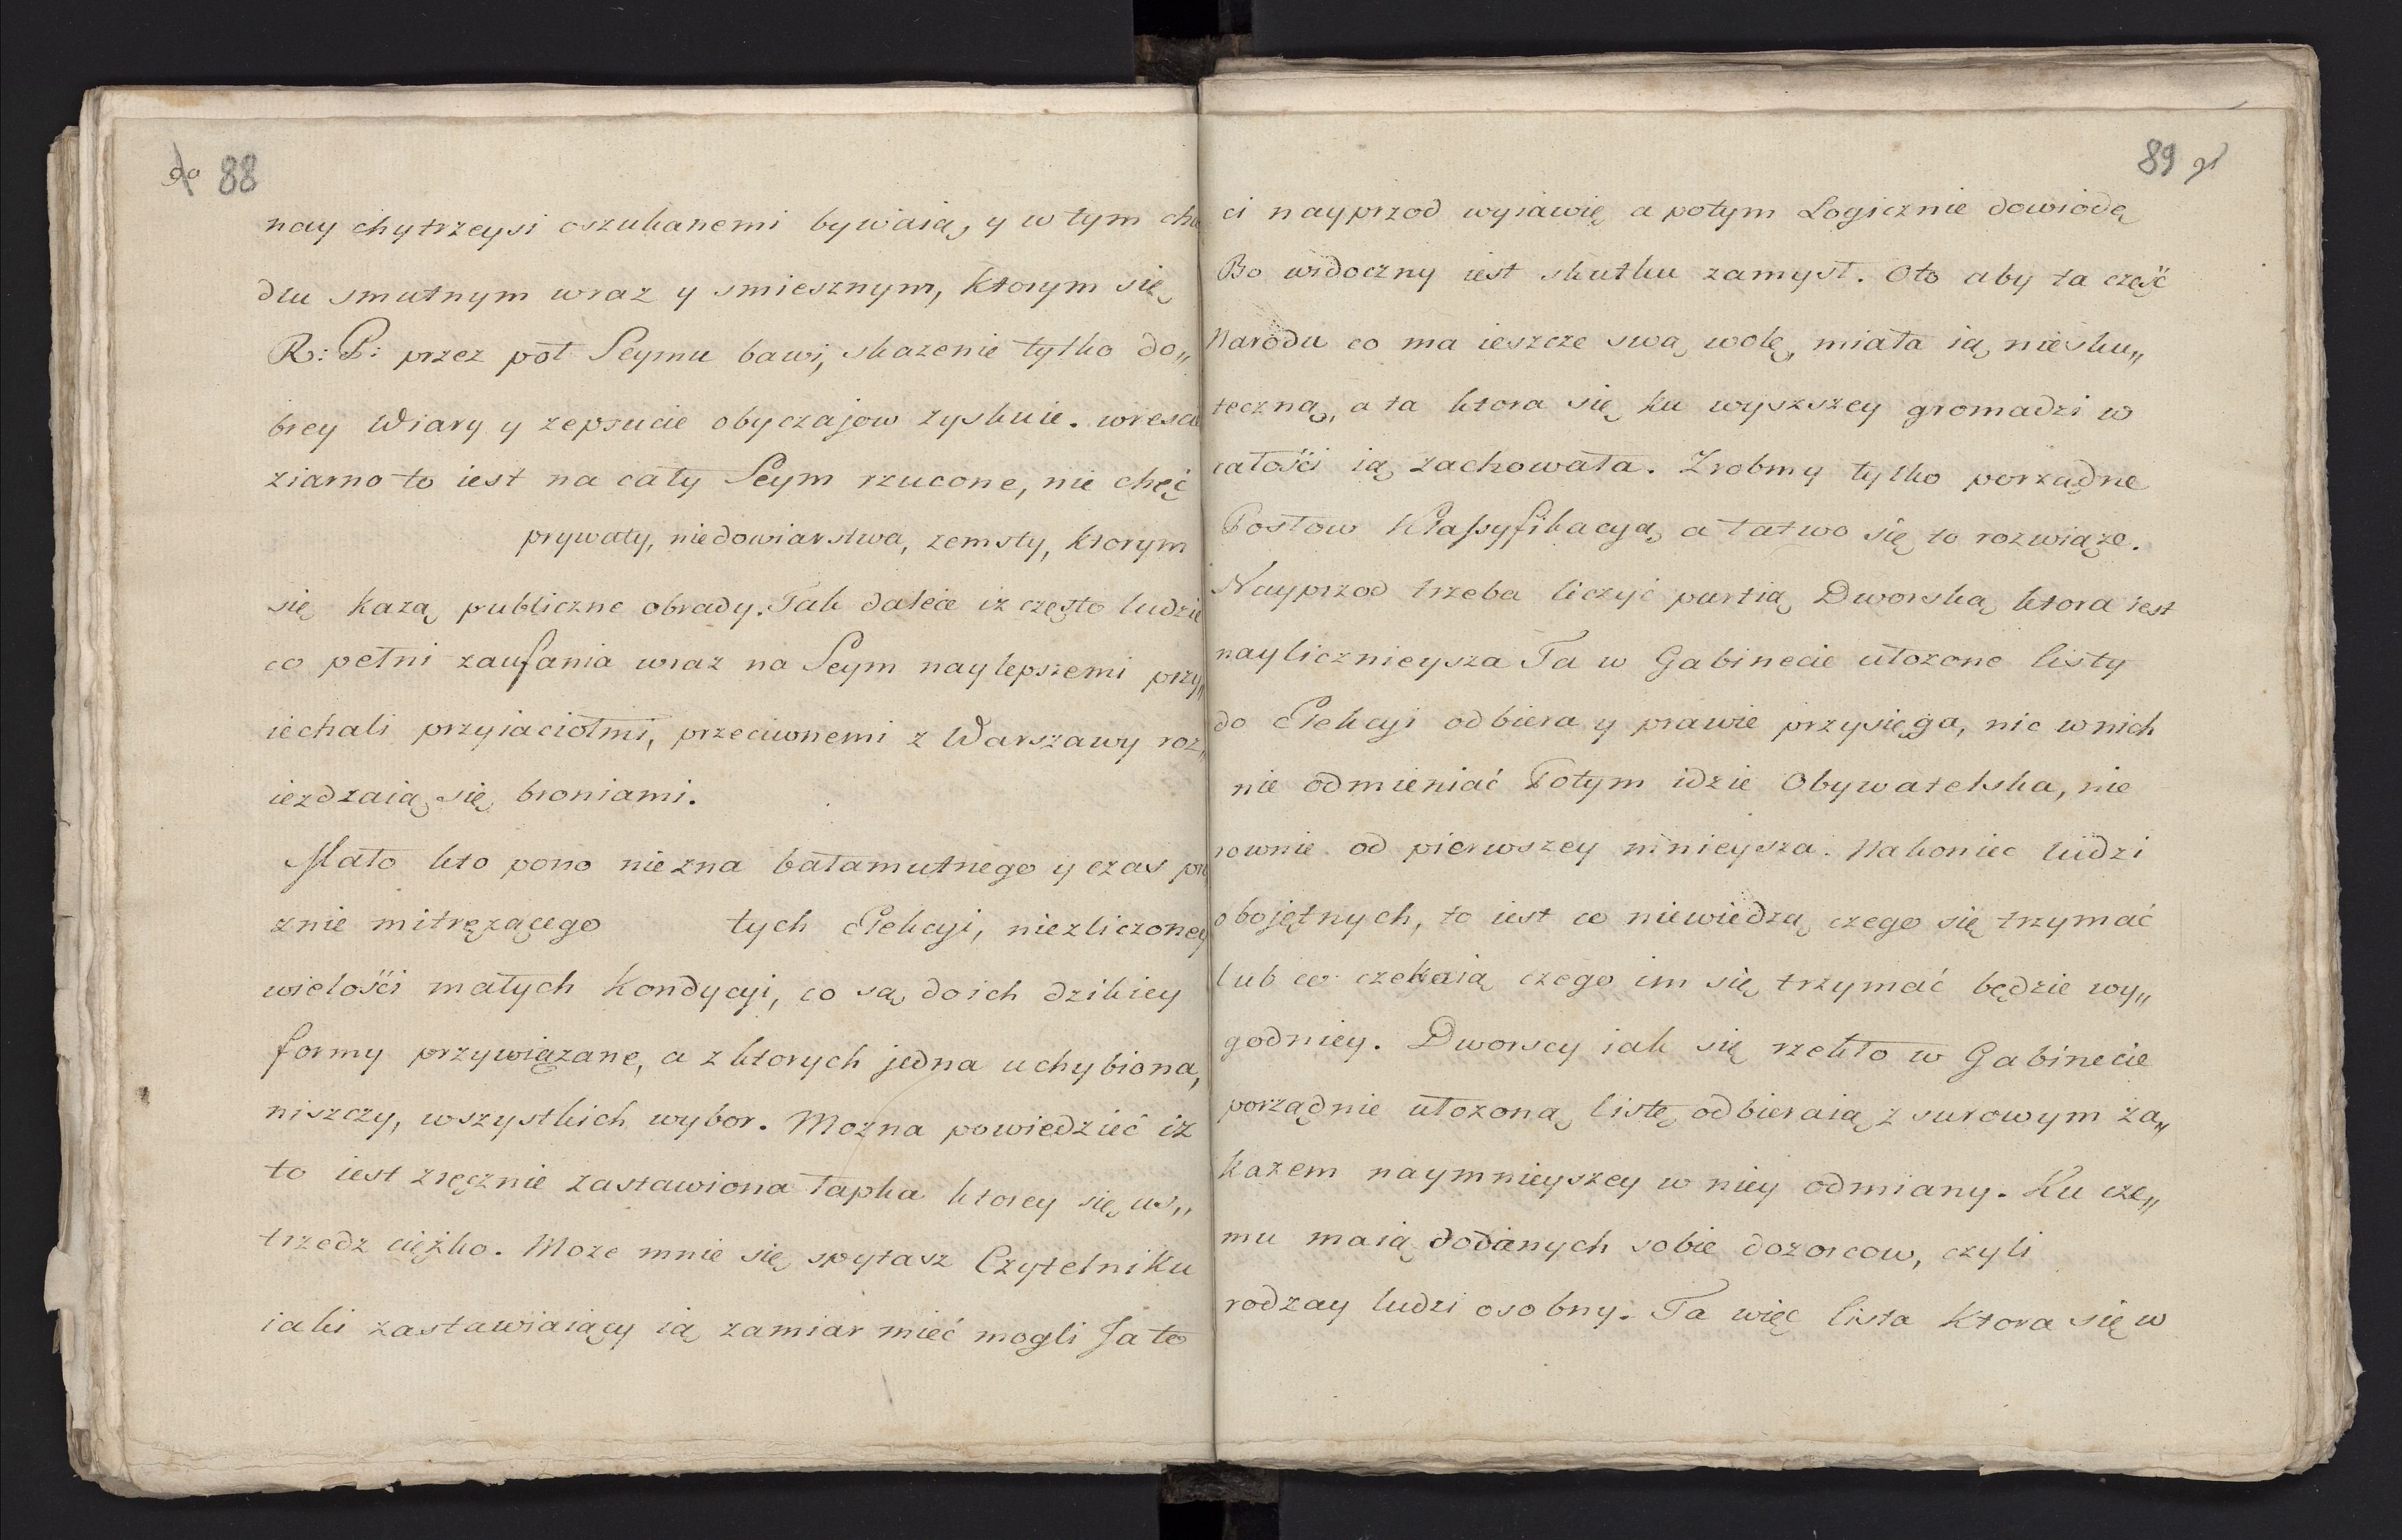 88
nay chytrzeysi oszukanemi bywaią, y w tym
dlu smutnym wraz y smiesznym, ktorym się
R: P: przez poł Seymu bawi, skazenie tylko do„
brey Wiary y zepsucie obyczajow zyskuie.
ziarno to iest na cały Seym rzucone, nie chęć
prywaty, niedowiarstwa, zemsty, ktorym
się kazą publiczne obrady. Tak dalece iz często ludzie
co pełni zaufania wraz na Seym naylepszemi przy„
iechali przyiaciołmi, przeciwnemi z Warszawy roz„
iezdzaią się broniami.
Mało kto pono niezna bałamutnego y czas
znie mitręzącego tych Elekcyi, niezliczoney
wielośći małych Kondycyi, co są do ich dzikiey
formy przywiązane, a z ktorych jedna uchybiona,
niszczy, wszystkich wybor. Mozna powiedzieć iz
to iest zręcznie zastawiona łapka ktorey się us„
trzedz ciężko. Moze mnie się spytasz Czytelniku
iaki zastawiaiący ią zamiar mieć mogli Ja to
89
ci nayprzod wyiawię a potym Logicznie dowiodę
Bo widoczny iest skutku zamysł. Oto aby ta część
Narodu co ma ieszcze swą wolę, miała ią niesku„
teczną, a ta ktora się ku wyszszey gromadzi w
całośći ią zachowała. Zrobmy tylko porządne
Posłow Klassyfikacyą, a łatwo się to rozwiąze.
Nayprzod trzeba liczyć partią Dworską ktora iest
naylicznieysza Ta w Gabinecie ułozone listy
do Elekcyi odbiera y prawie przysięga, nic w nich
nie odmieniać Potym idzie Obywatelska, nie
rownie od pierwszey mnieysza. Nakoniec ludzi
obojętnych, to iest co niewiedzą czego się trzymać
lub co czekaią czego im się trzymać będzie wy„
godniey. Dworscy iak się rzekło w Gabinecie
porządnie ułozoną listę odbieraią z surowym za„
kazem naymnieyszey w niey odmiany. Ku cze„
mu maią dodanych sobie dozorcow, czyli
rodzay ludzi osobny. Ta więc lista ktora się w